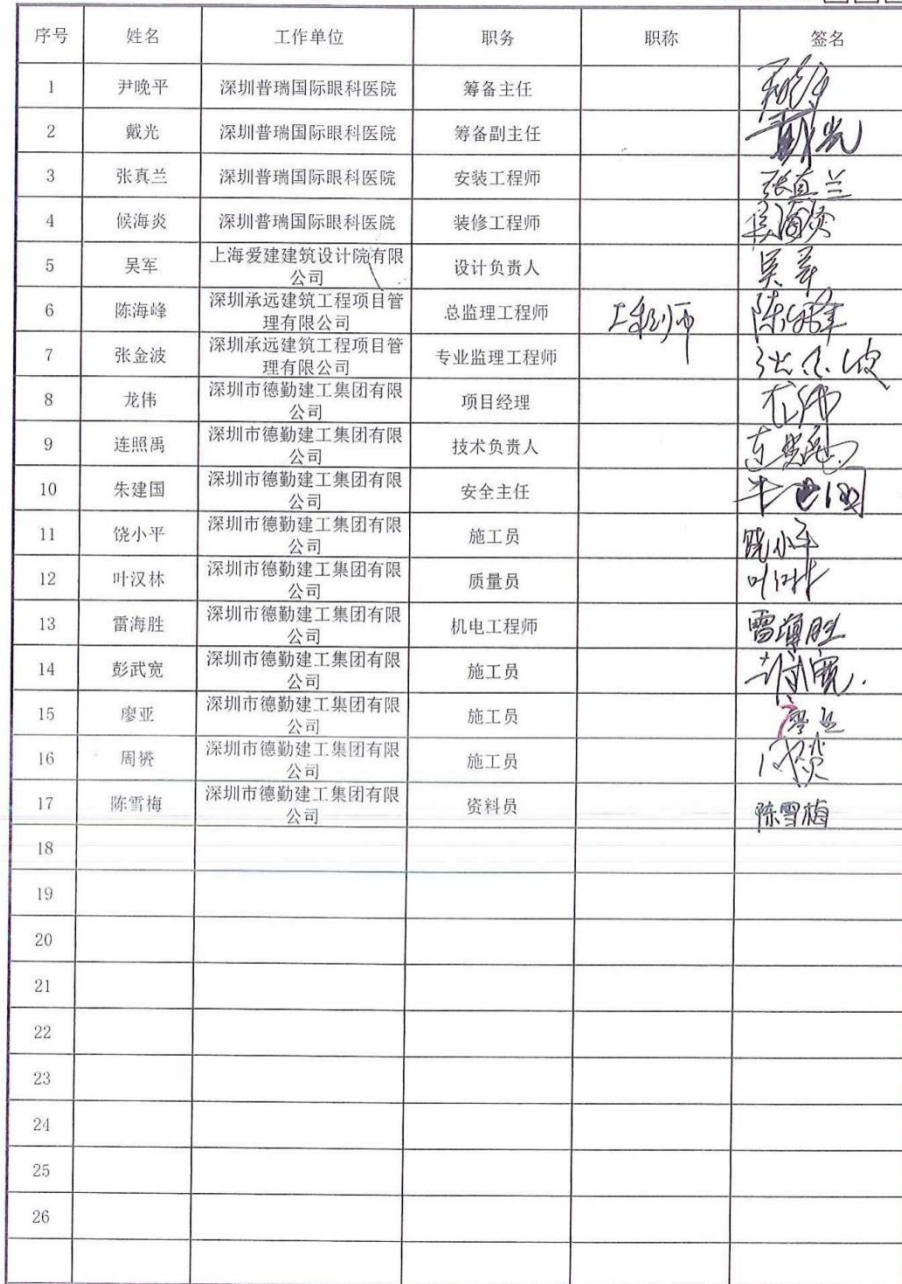 序号 姓名 工作单位 职务 职称 签名
1 尹晚平 深圳普瑞国际眼科医院 筹备主任
2 戴光 深圳普瑞国际眼科医院 筹备副主任 戴光
3 张真兰 深圳普瑞国际眼科医院 安装工程师 张真兰
4 候海炎 深圳普瑞国际眼科医院 装修工程师
5 吴军 上海爱建建筑设计院有限
公司 设计负责人 吴军
6 陈海峰 深圳承远建筑工程项目管
理有限公司 总监理工程师 工程师 陈海峰
7 张金波 深圳承远建筑工程项目管
理有限公司 专业监理工程师 张金波
8 龙伟 深圳市德勤建工集团有限
公司 项目经理 龙伟
9 连照禹 深圳市德勤建工集团有限
公司 技术负责人 连照禹
10 朱建国 深圳市德勤建工集团有限
公司 安全主任
11 饶小平 深圳市德勤建工集团有限
公司 施工员 饶小平
12 叶汉林 深圳市德勤建工集团有限
公司 质量员 叶汉林
13 雷海胜 深圳市德勤建工集团有限
公司 机电工程师 雷海胜
14 彭武宽 深圳市德勤建工集团有限
公司 施工员
15 廖亚 深圳市德勤建工集团有限
公司 施工员 廖亚
16 周赟 深圳市德勤建工集团有限
公司 施工员
17 陈雪梅 深圳市德勤建工集团有限
公司 资料员 陈雪梅
18
19
20
21
22
23
24
25
26